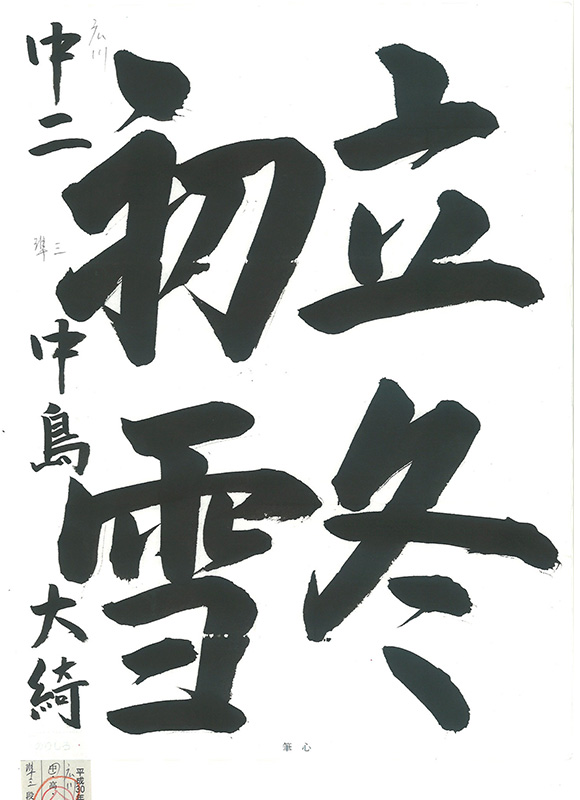 立冬
初雪
広川
中二
準三
中島大綺
心筆
平成30年
広川
準三段